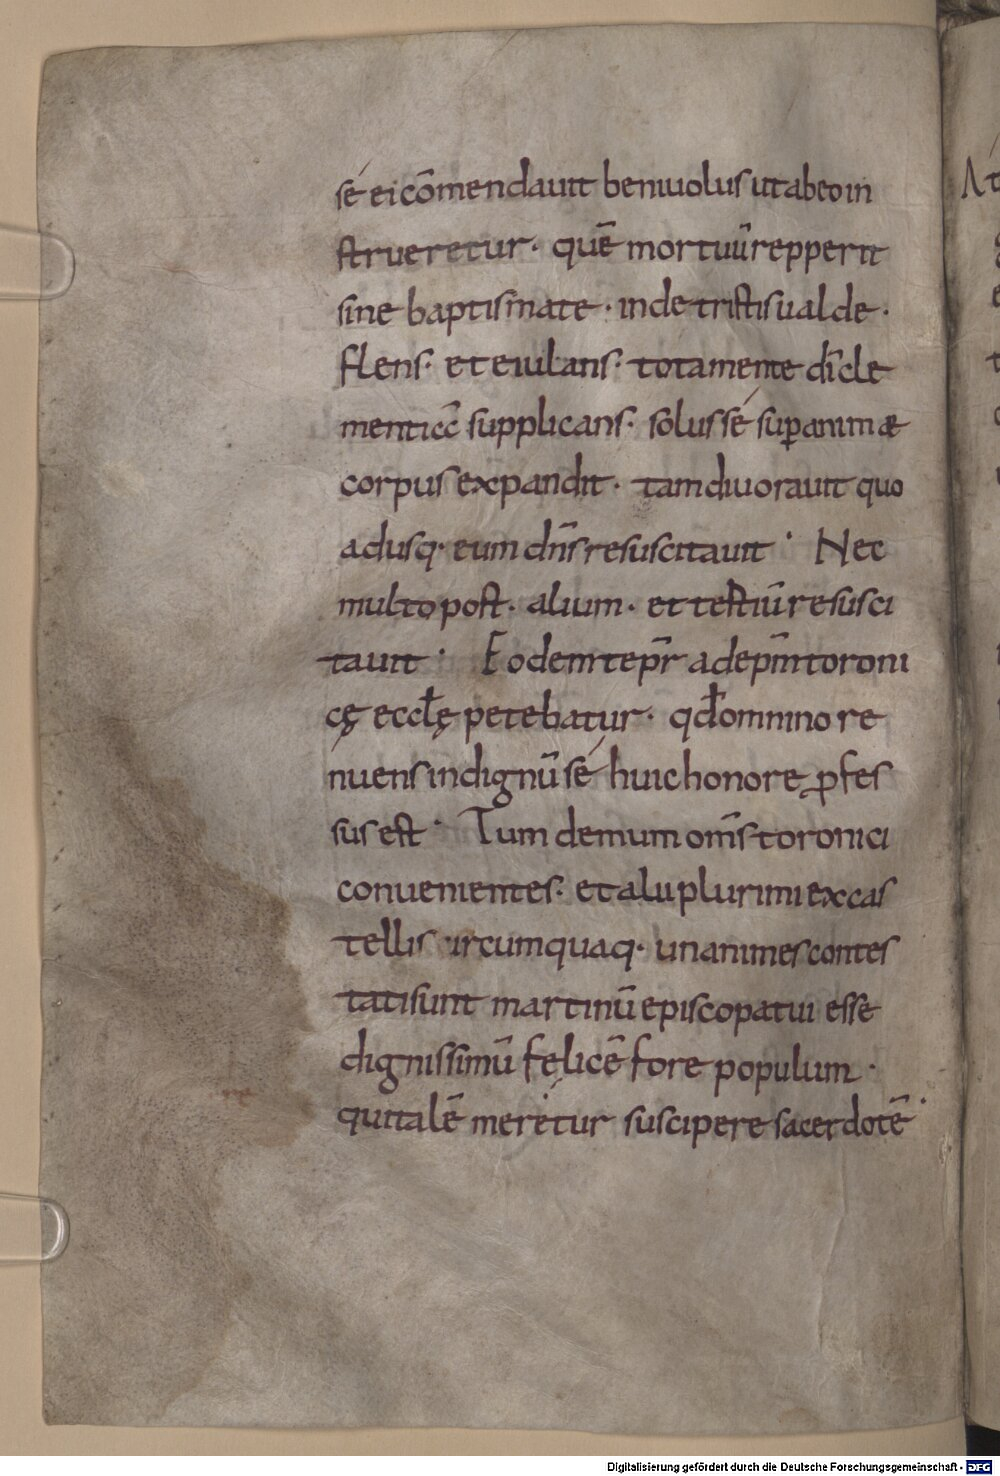 sé ei cōmendauit beniuolus ut ab eo in
strueretur · quē mortuū repperit
sine baptismate · inde tristis ualde ·
flens · et eiulans · tota mente dn̄i cle
mentiæ supplicans · solus sé sup̄ animæ
corpus expandit · tam diu orauit quo
adusq· eum dn̄s resuscitauit · Nec
multo post · alium · et testiū resusci
tauit · Eodem tēpr ad ep̄m toroni
cę eccłę petebatur · qđ omnino re
nuens indignū sé huic honore ꝓfes
sus est · Tum demum om̄s toronici
conuenientes · et alii plurimi ex cas
tellis circumquaq· unanimes contes
tati sunt martinū episcopatui esse
dignissimū felicē fore populum ·
qui talē merétur suscipere sacerdotē ·
Digitalisierung gefördert durch die Deutsche Forschungsgemeinschaft - DFG